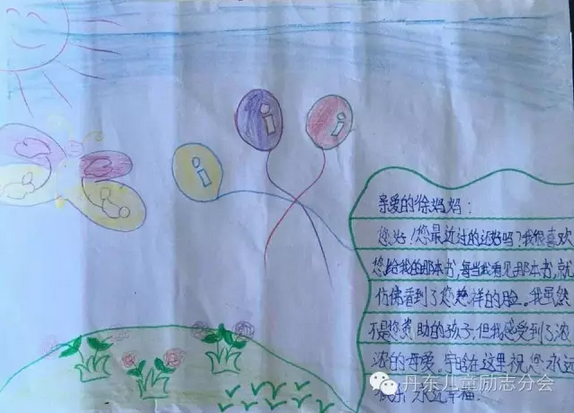 i
i
i
亲爱的徐妈妈：
您好！您最近过的还好吗？我很喜欢
您给我的那本书，每当我看见那本书，就
仿佛看到了您慈祥的脸。我虽然
不是您资助的孩子，但我感受到了浓
浓的母爱，在这里祝您永远
快乐 永远幸福
丹东儿童励志分会